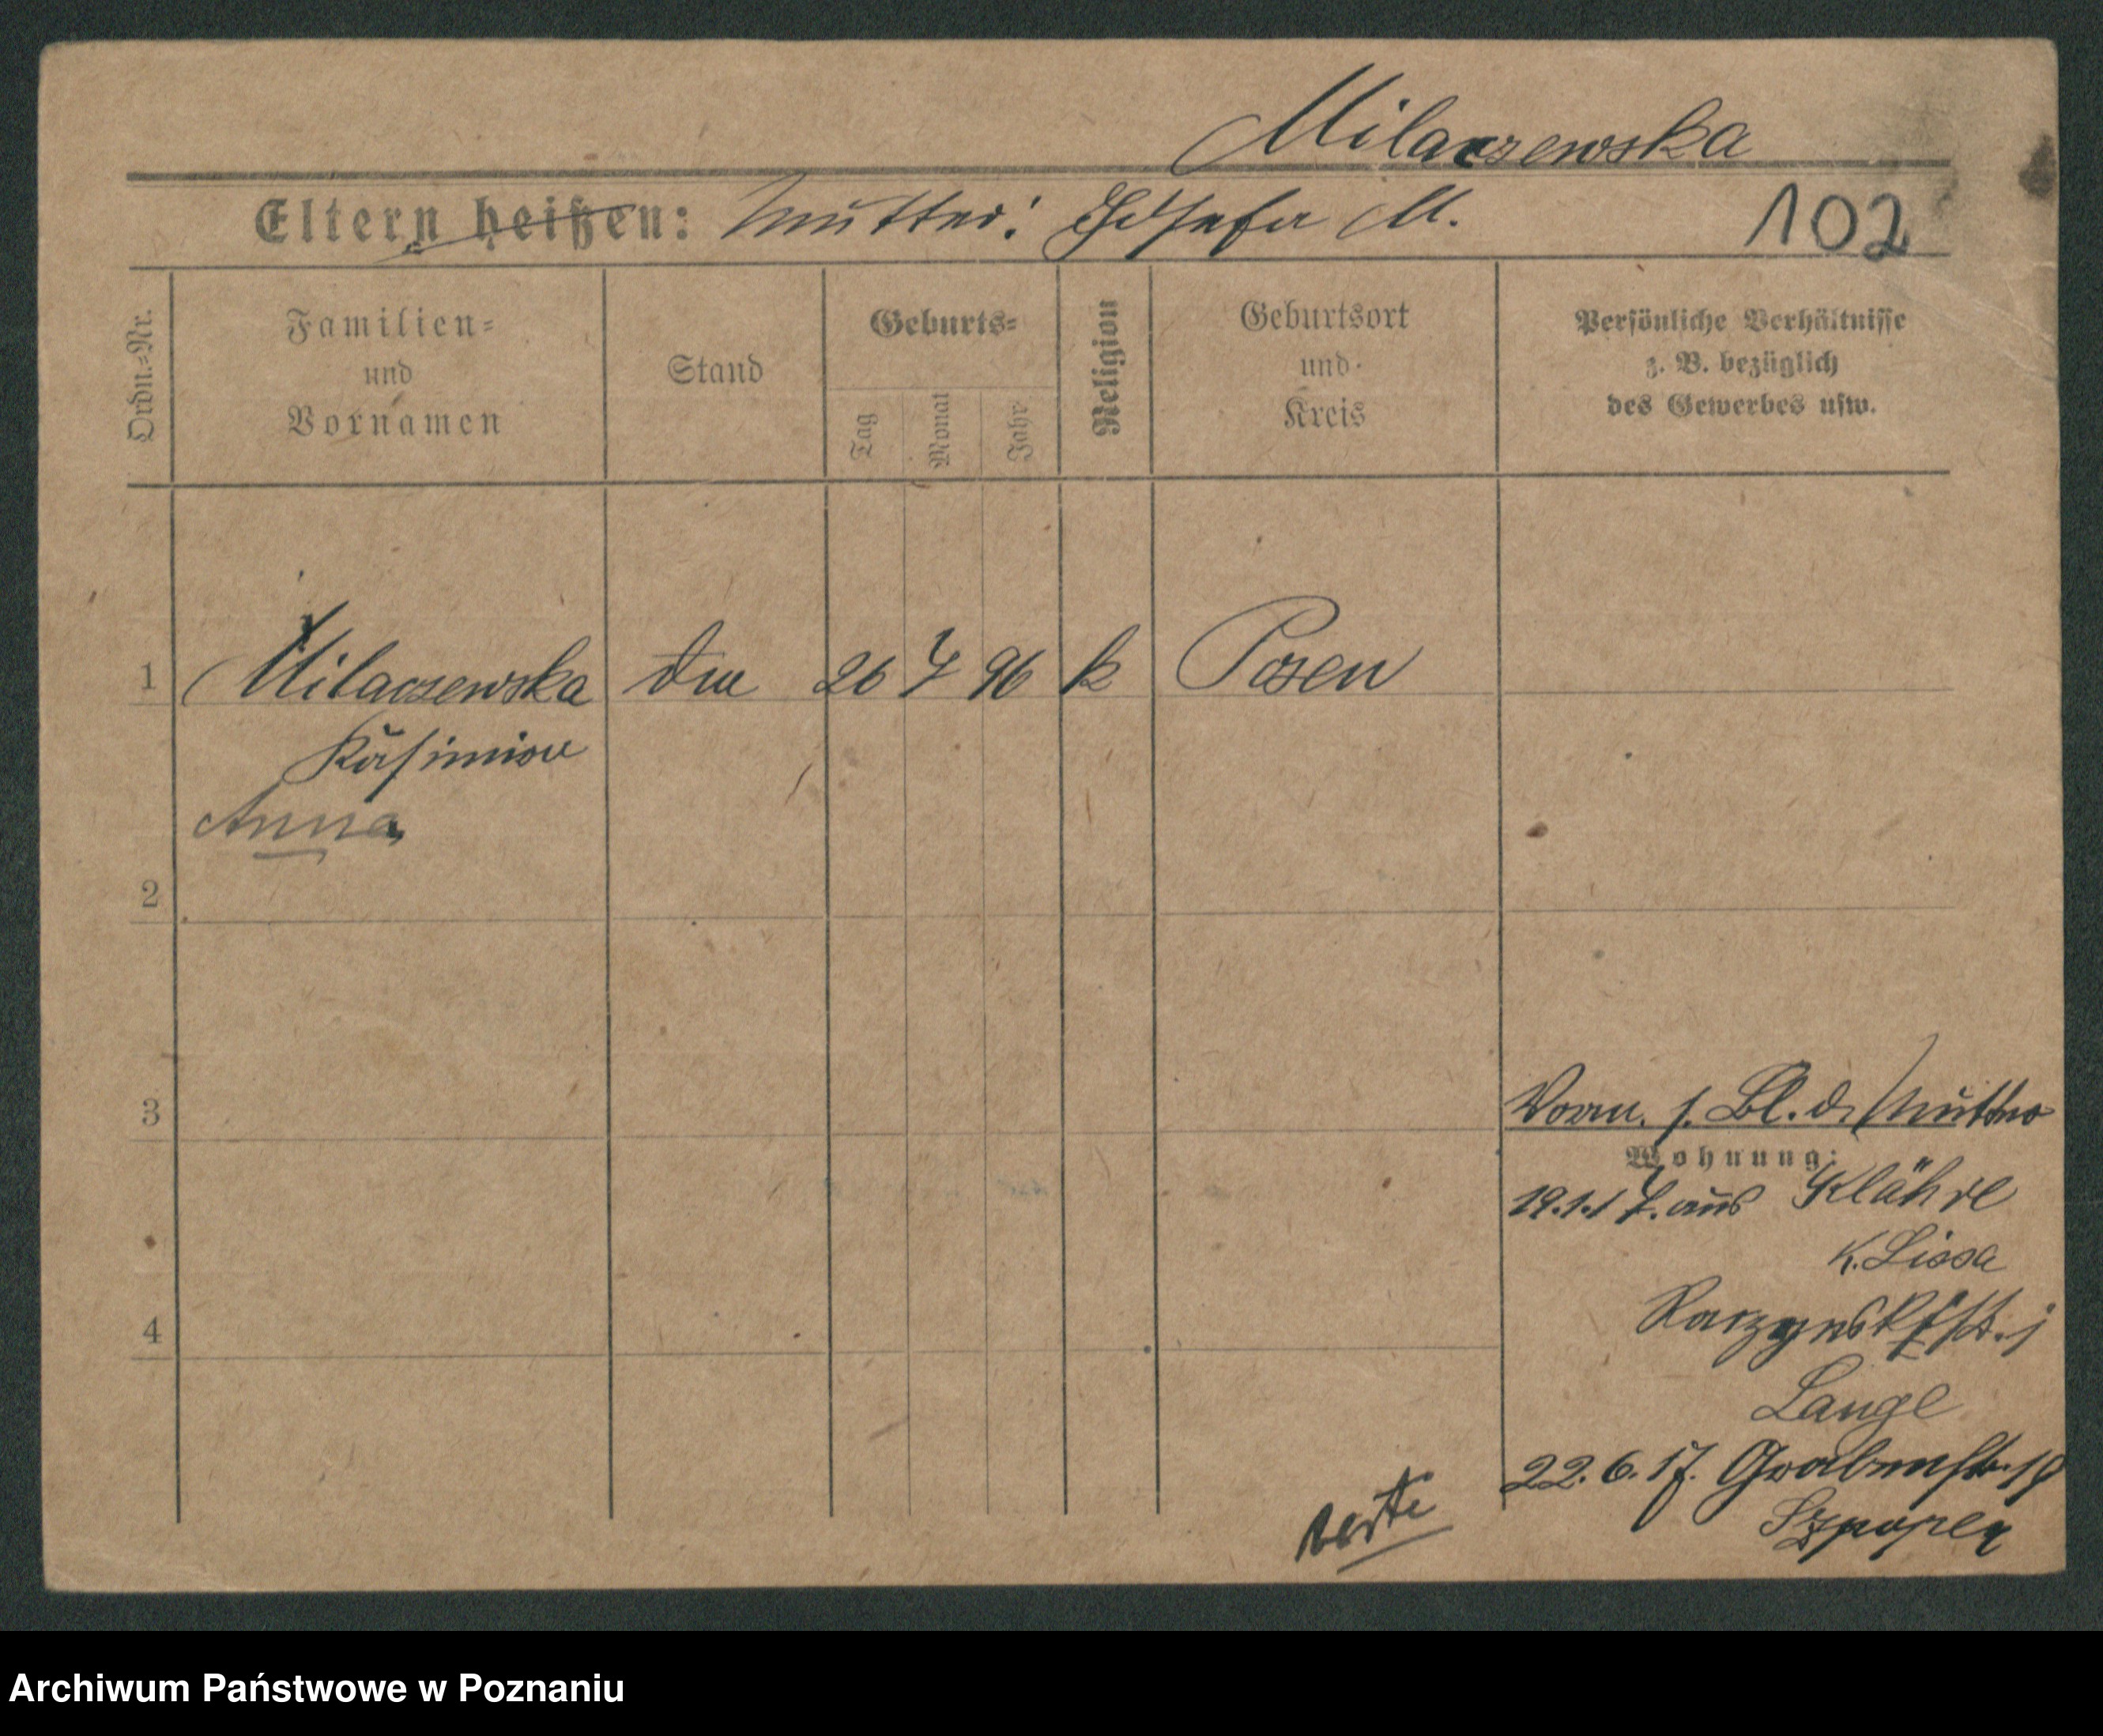 Milaczewska
Eltern heißen: Mutter: Josefa M.
102
Ordn.-Nr.
Familien-
und
Vornamen
Stand
Geburts-
Tag
Monat
Jahr
Religion
Geburtsort
und
Kreis
Persönliche Verhältnisse
z. B. bezüglich
des Gewerbes usw.
1 Milaczewska 26 7 96 k Posen
Kasimira
Anna
2
3
Vorm. s. Bl. d. Mutter
Wohnung:
19.1.17. aus Klähre
K. Lissa
4
Lange
22.6.17. Grabenstr. 19
Archiwum Państwowe w Poznaniu